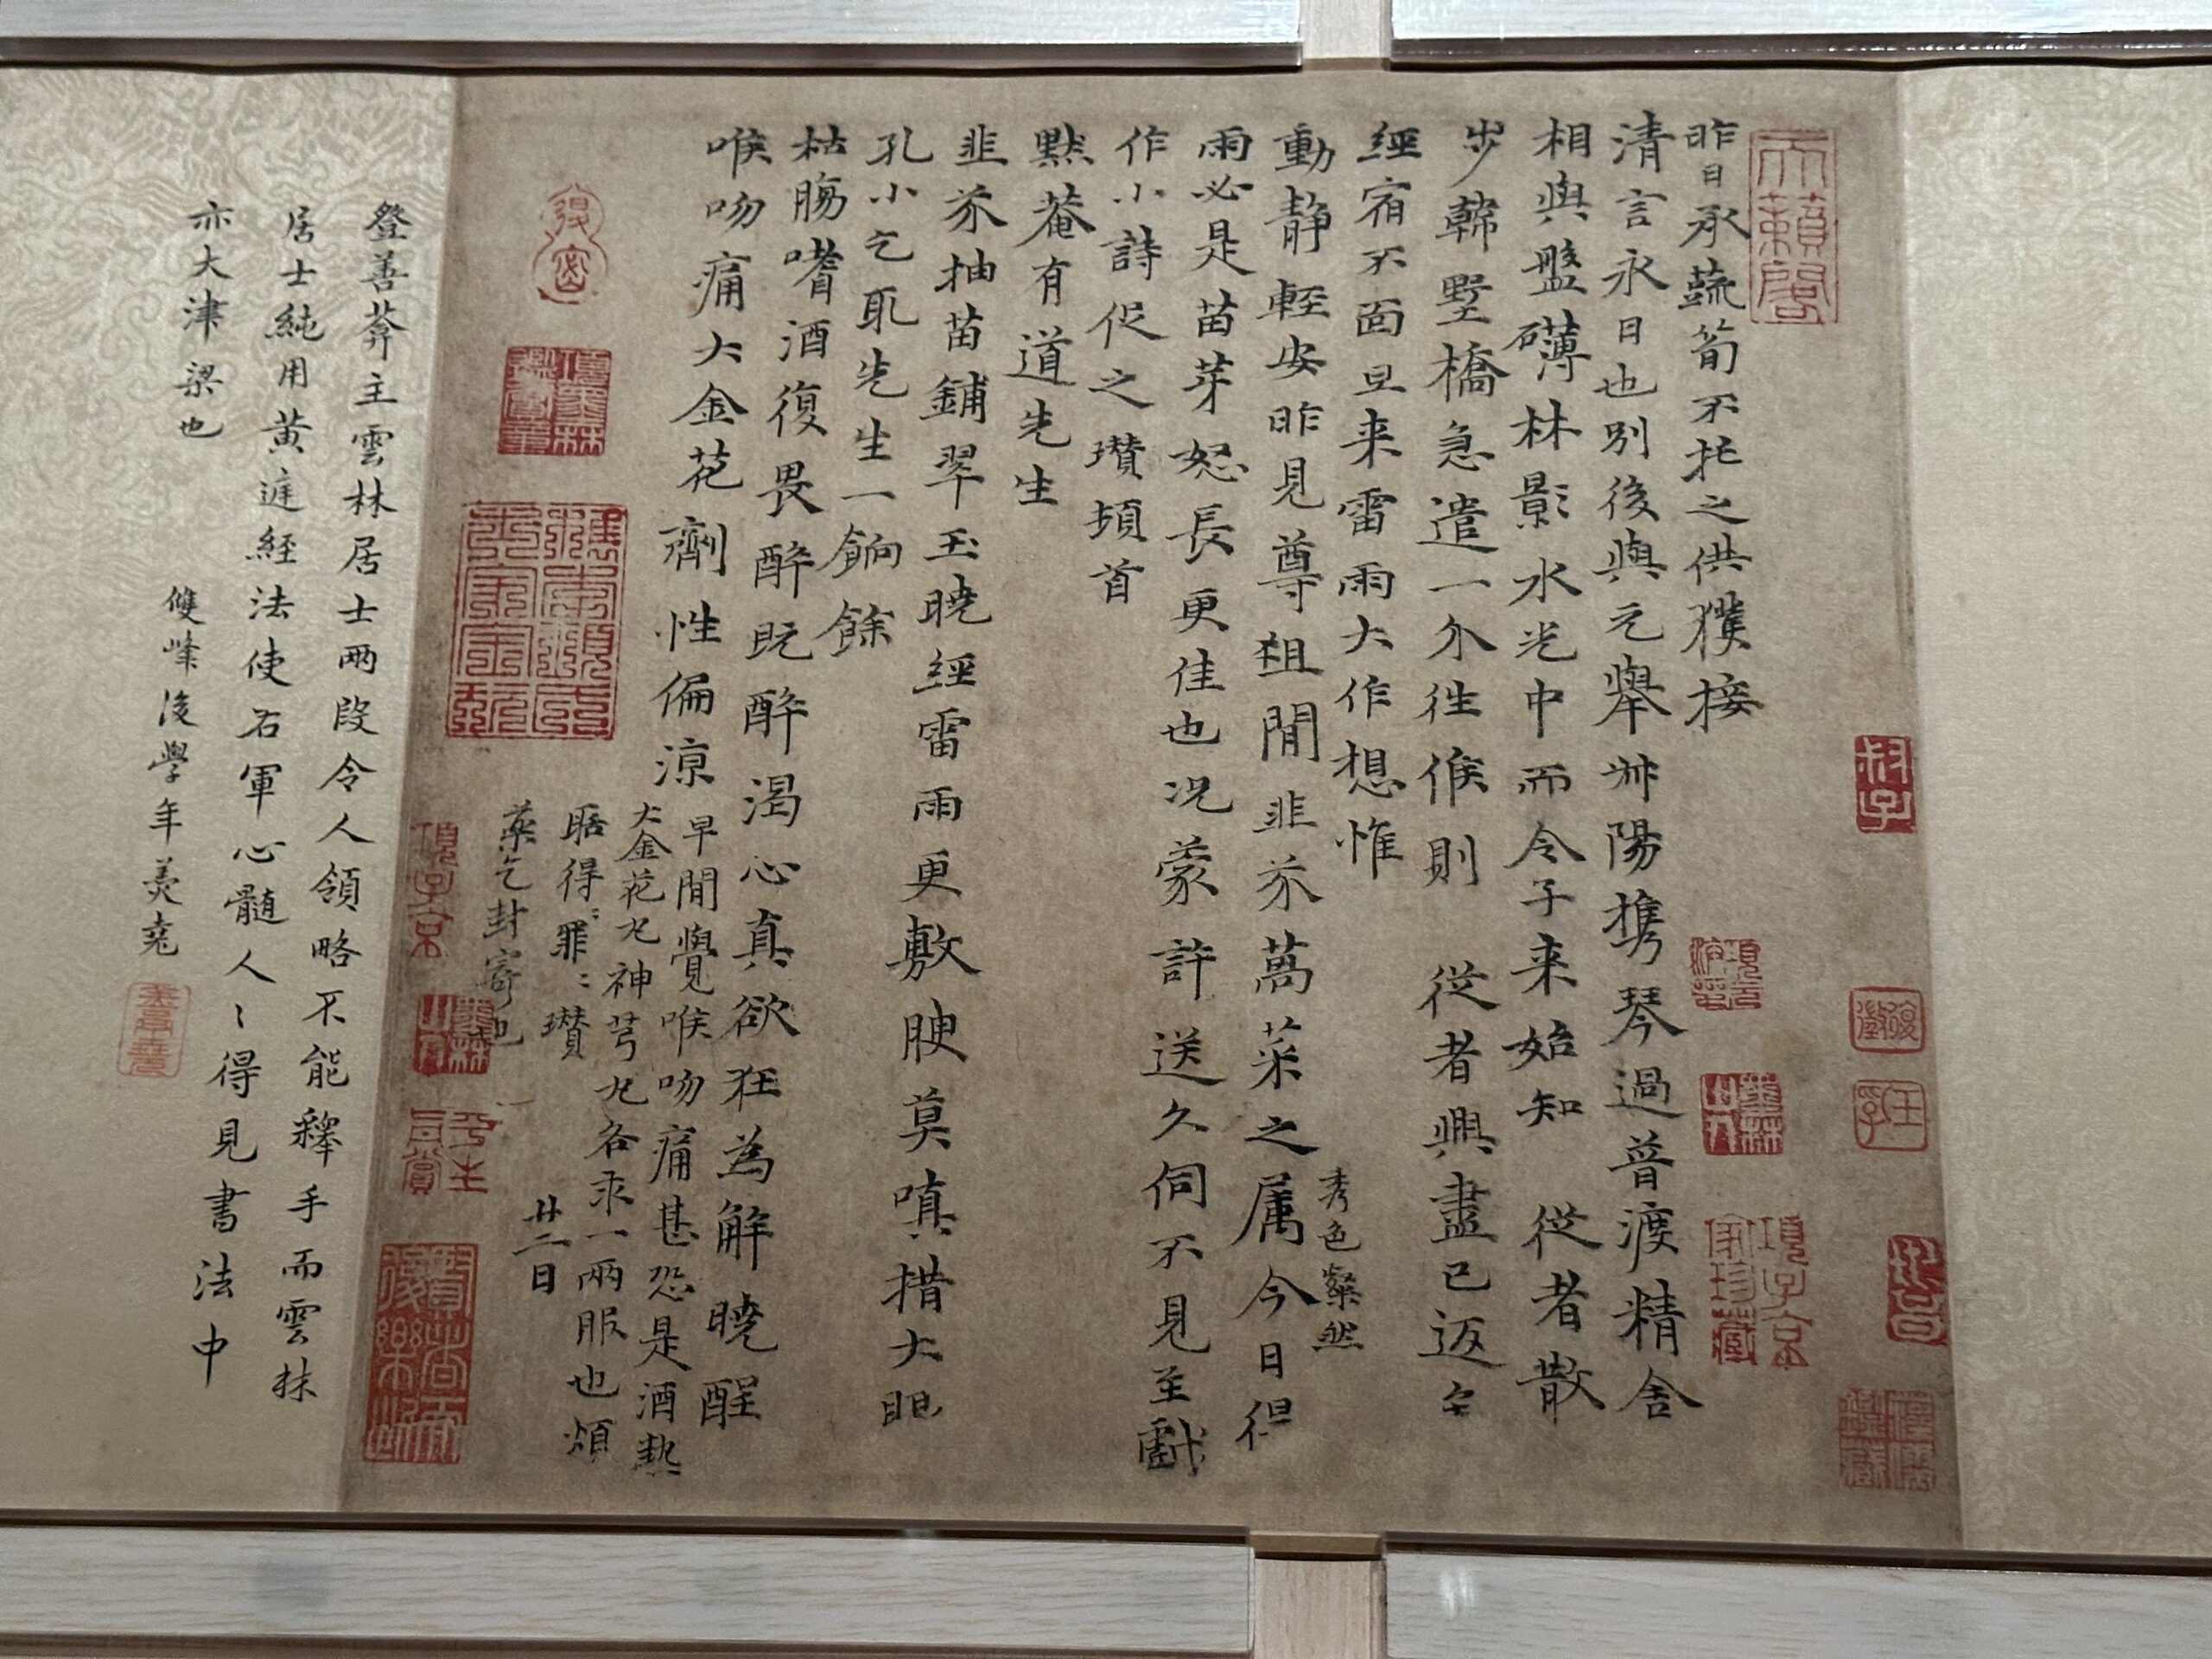 昨日承蔬筍不托之供獲接
清言永日也別後與元舉叔陽攜琴過普渡精舍
相與盤礴林影水光中而令子来始知 從者散
步韓墅橋急遣一介往候則 從者興盡已返矣
經宿不面旦来雷雨大作想惟
動静輕安昨見尊俎閒韭芥萵菜之属秀色粲然今日得
雨必是苗芽怒長更佳也況蒙許送久伺不見至戲
作小詩促之瓚頓首
黙菴有道先生
韭芥抽苗鋪翠玉曉經雷雨更敷腴莫嗔措大眼
孔小乞取先生一餉餘
枯腸嗜酒復畏醉既醉渴心真欲狂為解曉酲
喉吻痛大金花劑性偏涼
早間覺喉吻痛甚恐是酒熱
大金花丸神芎丸各求一兩服也煩
聒得罪〻瓚
藥乞封寄也
廿二日
天籟閣
項子京家珍藏
登善莽主雲林居士兩段令人領略不能釋手而雲林
居士純用黄庭經法使右軍心髓人〻得見書法中
亦大津梁也
雙峰後學年羹堯